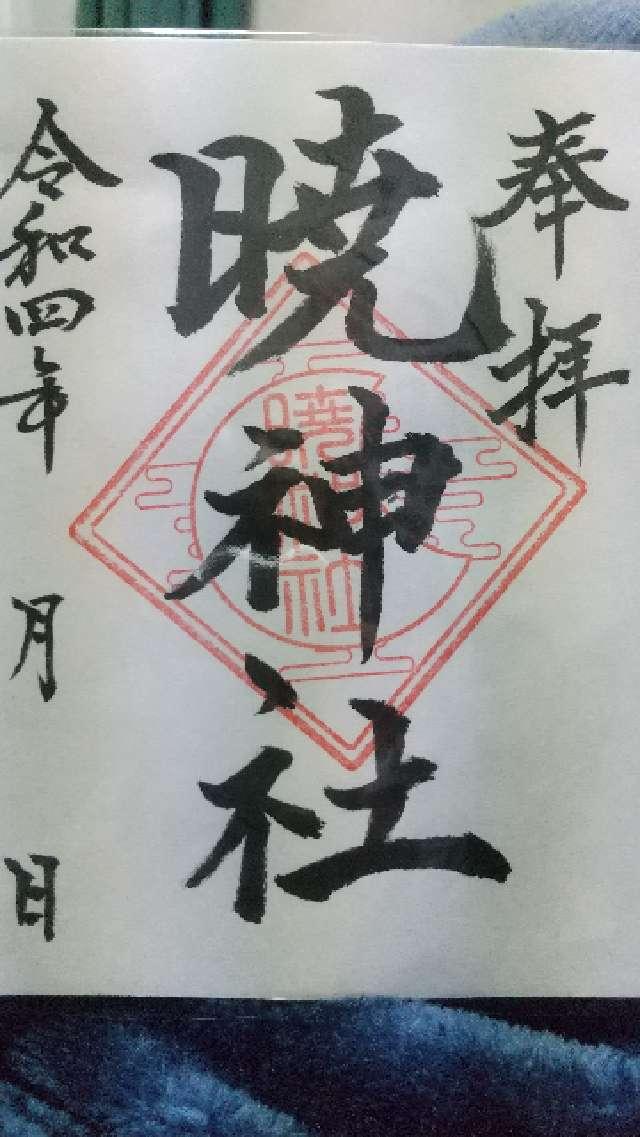 奉拝
暁神社
暁神社
令和四年 月 日